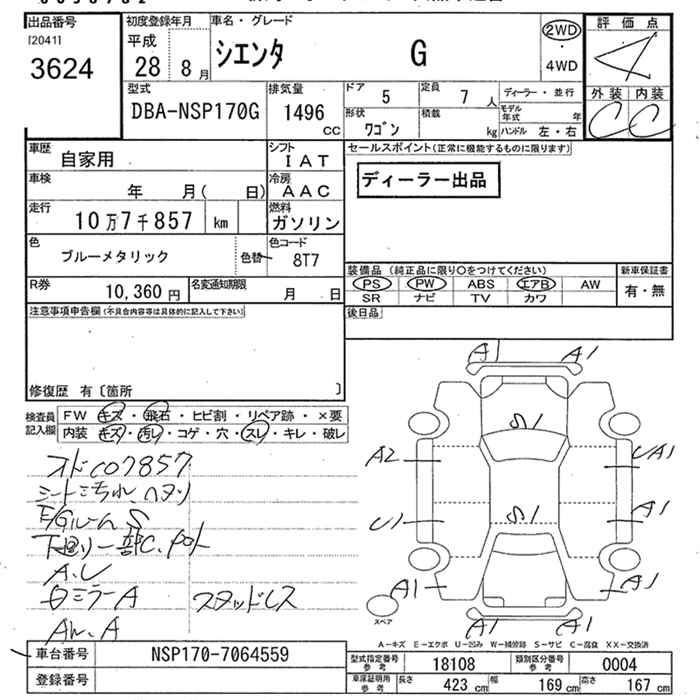 出品番号 初度登録年月 車名・グレード 評価点
[2041]
3624 平成 28 8月 シエンタ G 2WD ・ 4WD 4
型式 排気量 ドア 5 定員 7人 ディーラー・並行 外装 内装
DBA-NSP170G 1496 CC 形状 ワゴン 積載 kg モデル年式 年 C C
ハンドル 左・右
車歴 自家用 シフト IAT セールスポイント(正常に機能するものに限ります)
車検 年 月( 日) 冷房 AAC ディーラー出品
走行 10万7千857 km 燃料 ガソリン
色 ブルーメタリック 色替 色コード 8T7
装備品(純正品に限り○をつけてください) 新車保証書
R券 10,360円 名変通知期限 月 日 PS PW ABS エアB AW 有・無
SR ナビ TV カワ
注意事項申告欄(不具合内容等は具体的に記入して下さい) 後日品
修復歴 有〔箇所 〕
検査員記入欄 FW キズ・飛石・ヒビ割・リペア跡・×要
内装 キズ・汚れ・コゲ・穴・スレ・キレ・破レ
A1 A1
S1
A2 UA1
オドCO7857
シートシミ汚れ、ヘタリ
E/Gルーム S
U1 S1 A1
下廻り一部C、
A.U
A1 A1
ミラーA スタッドレス
スペア
A1 A1
A-キズ E-エクボ U-凹み W-補修跡 S-サビ C-腐食 XX-交換済
車台番号 NSP170-7064559 型式指定番号 参考 18108 類別区分番号 参考 0004
登録番号 車庫証明用 参考 長さ 423cm 幅 169cm 高さ 167cm